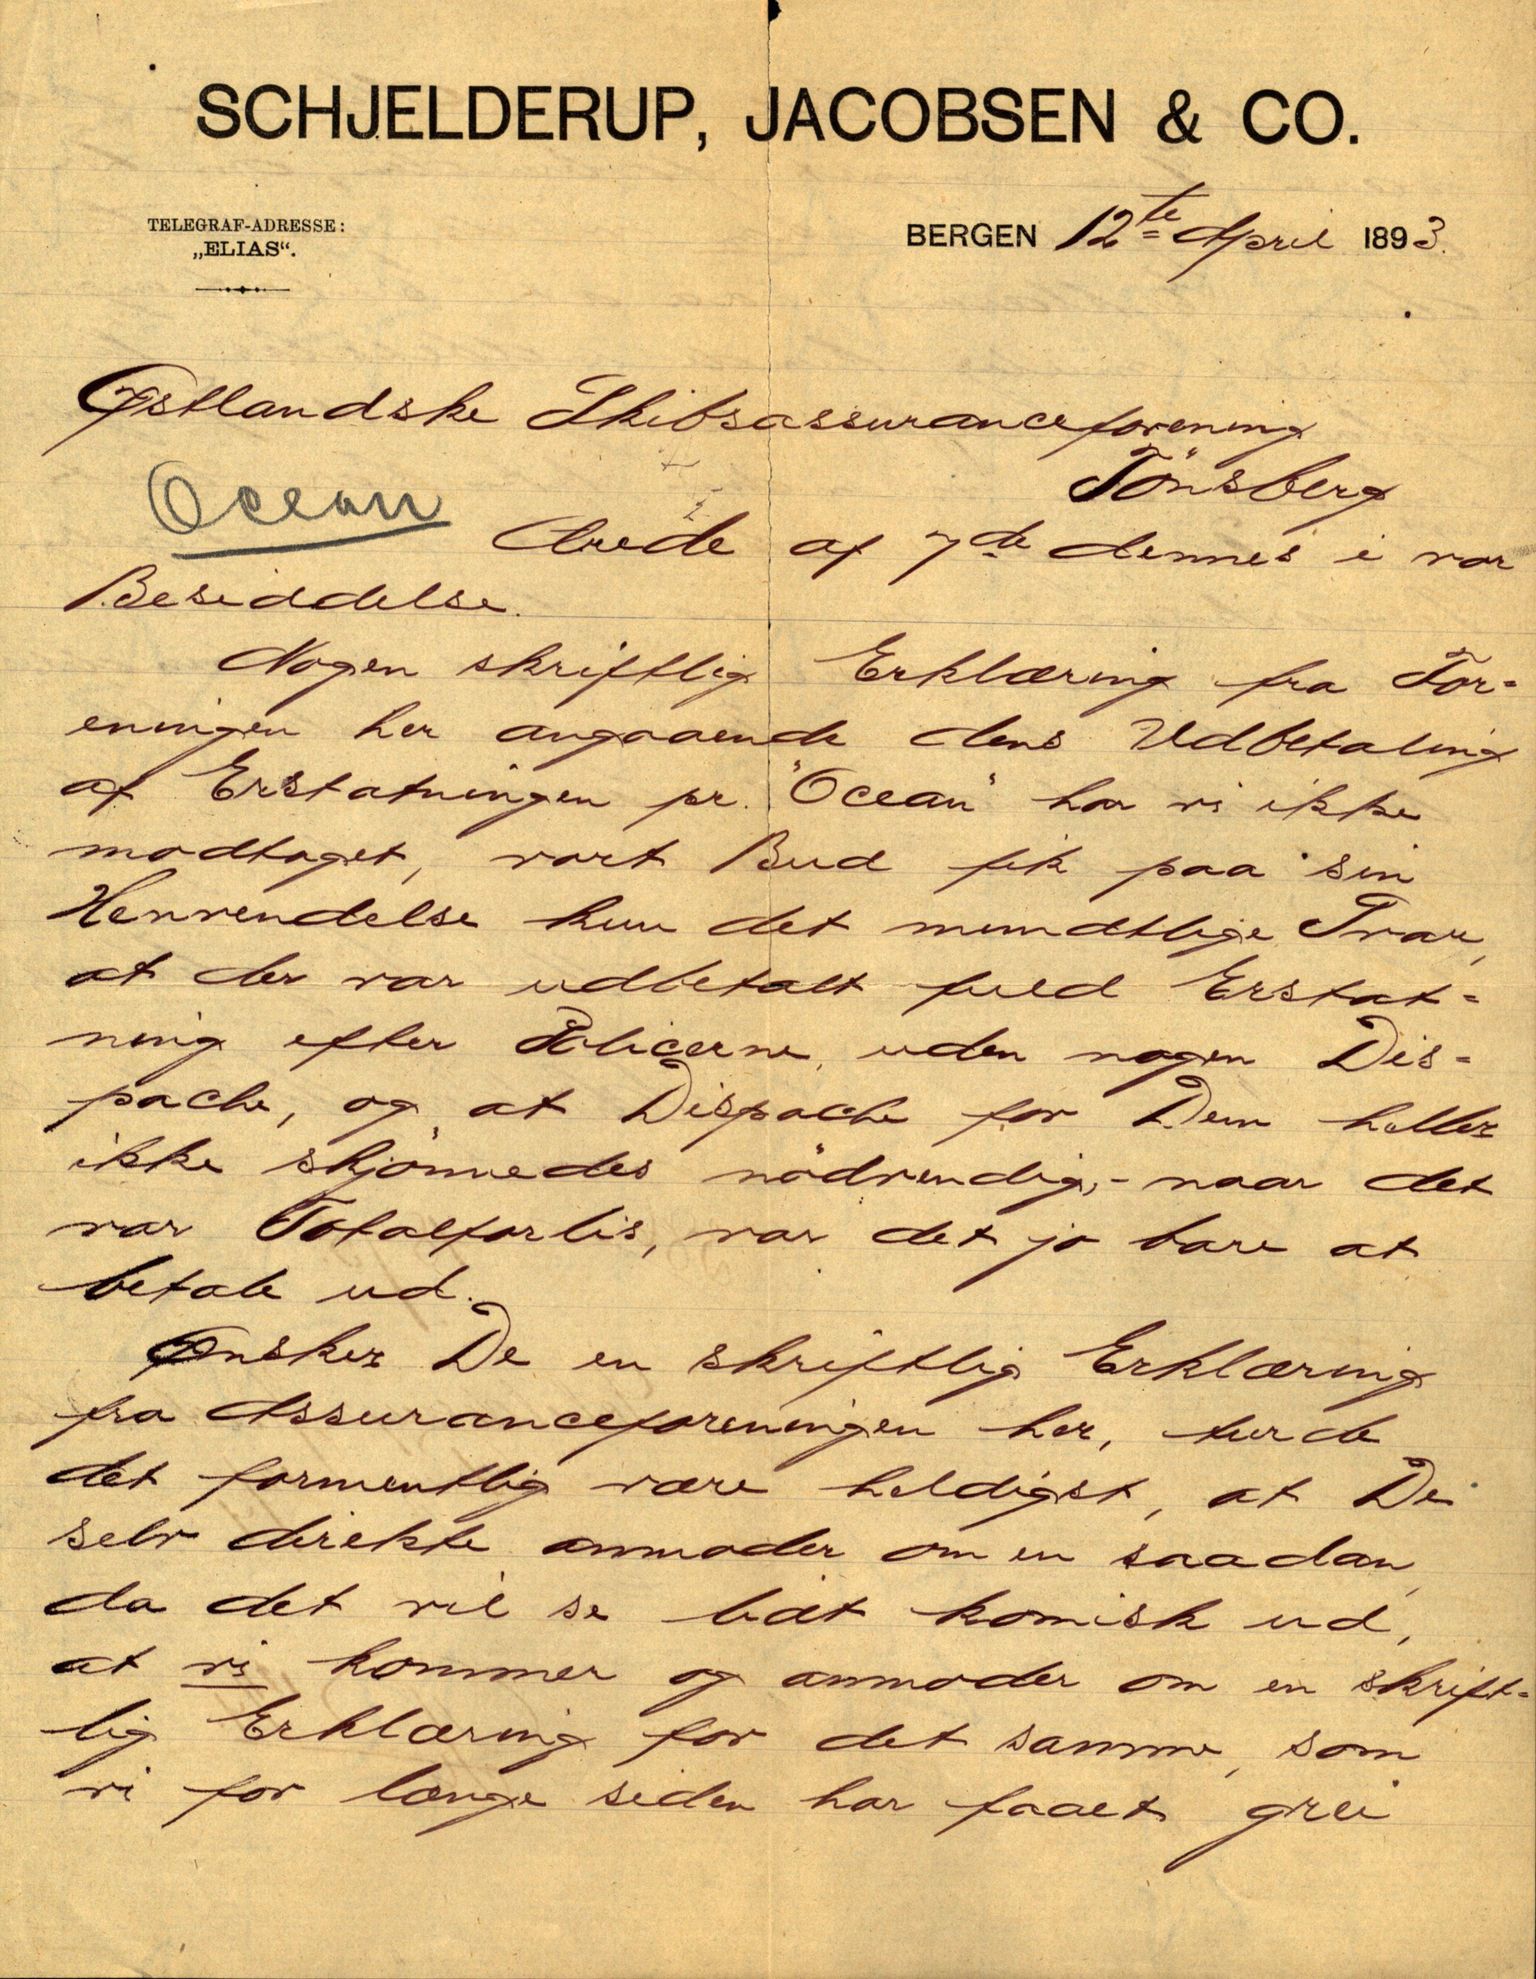 SCHJELDERUP, JACOBSEN & CO.
TELEGRAF-ADRESSE:
„ELIAS“.
BERGEN 12te April 1893.
Østlandske Skibsassuranceforening
Tönsberg
Ocean
Ærede af 7de dennes i vor
Besiddelse.
Nogen skriftlig Erklæring fra For-
eningen her angaaende dens Udbetaling
af Erstatningen pr. "Ocean" har vi ikke
modtaget, vort Bud fik paa sin
Henvendelse kun det mundtlige Svar,
at der var udbetalt fuld Erstat-
ning efter Policerne, uden nogen Dis-
pache, og at Dispache for Dem heller
ikke skjönnedes nödvendig,- naar det
var Totalforlis, var det jo bare at
betale ud.
Ønsker De en skriftlig Erklæring
fra Assuranceforeningen her, turde
det formentlig være heldigst, at De
selv direkte anmoder om en saadan,
da det vil se lidt komisk ud,
at vi kommer og anmoder om en skrift-
lig Erklæring for det samme, som
vi for længe siden har faaet grei